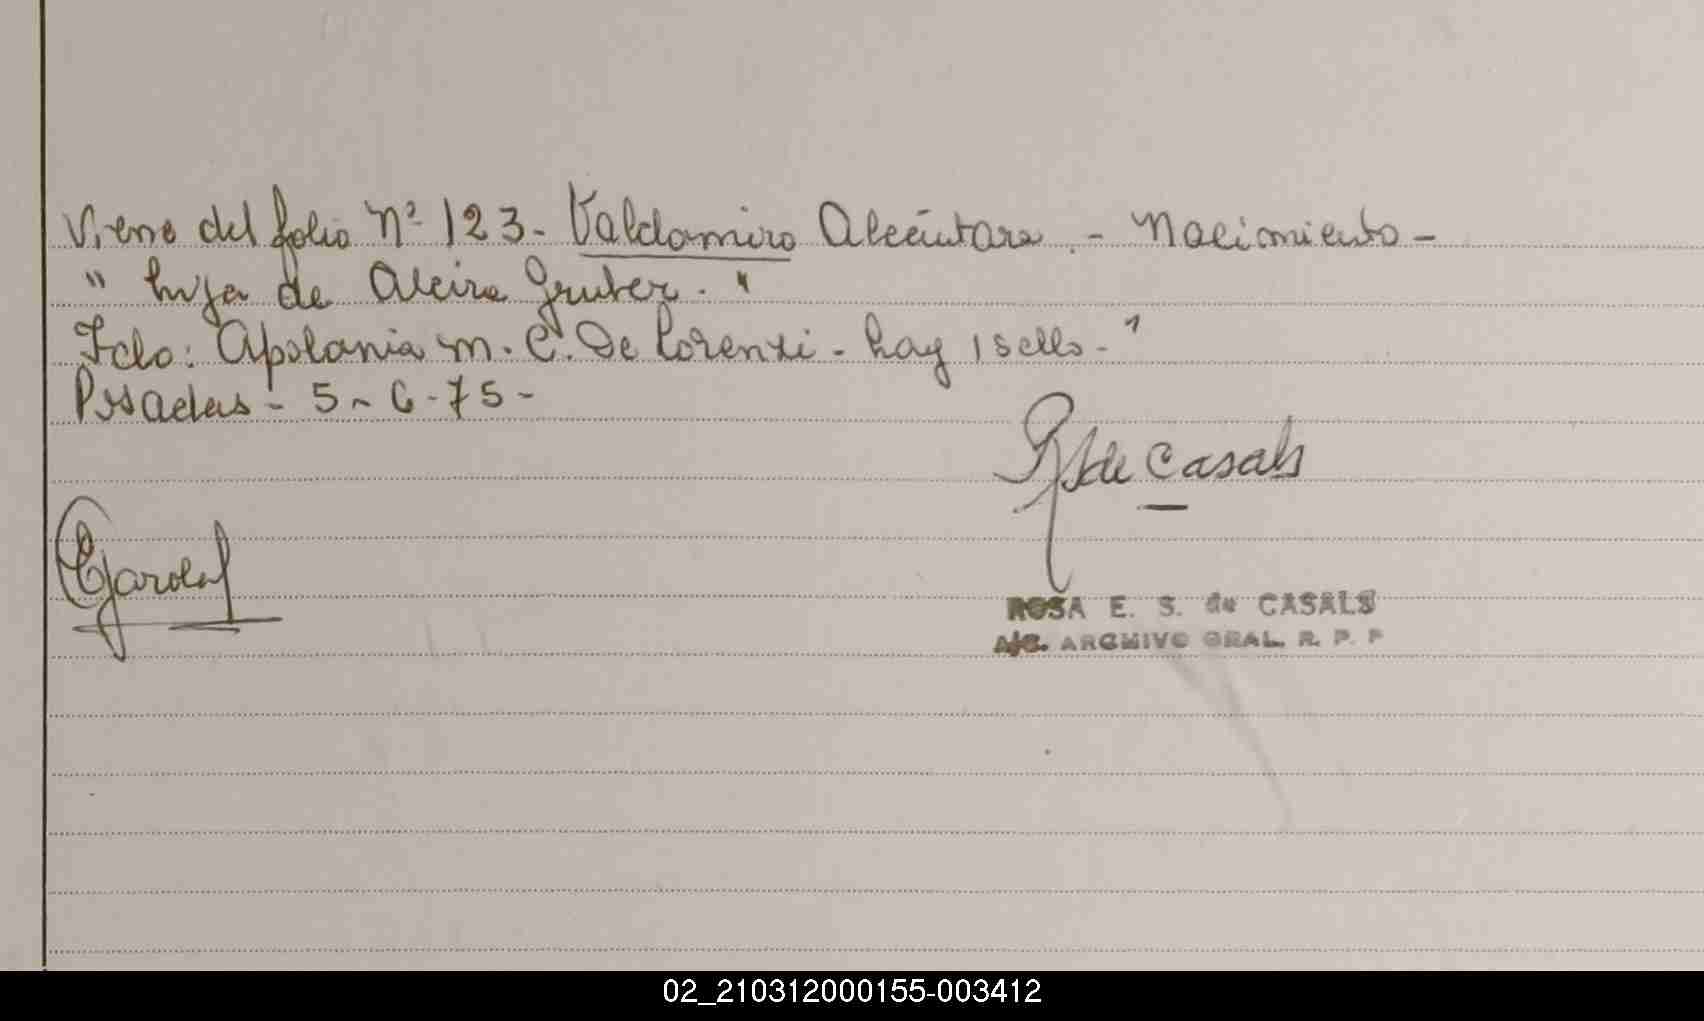 Viene del folio Nº 123 - Valdomiro Alcántara. - Nacimiento -
" hija de Alcira Gruber. "
Fdo: Apolonia M. C. De Lorenzi - hay 1 sello - "
Posadas - 5 - 6 - 75 -
R S de Casals
ROSA E. S. de CASALS
A/C. ARCHIVO GRAL. R. P. P
02_210312000155-003412